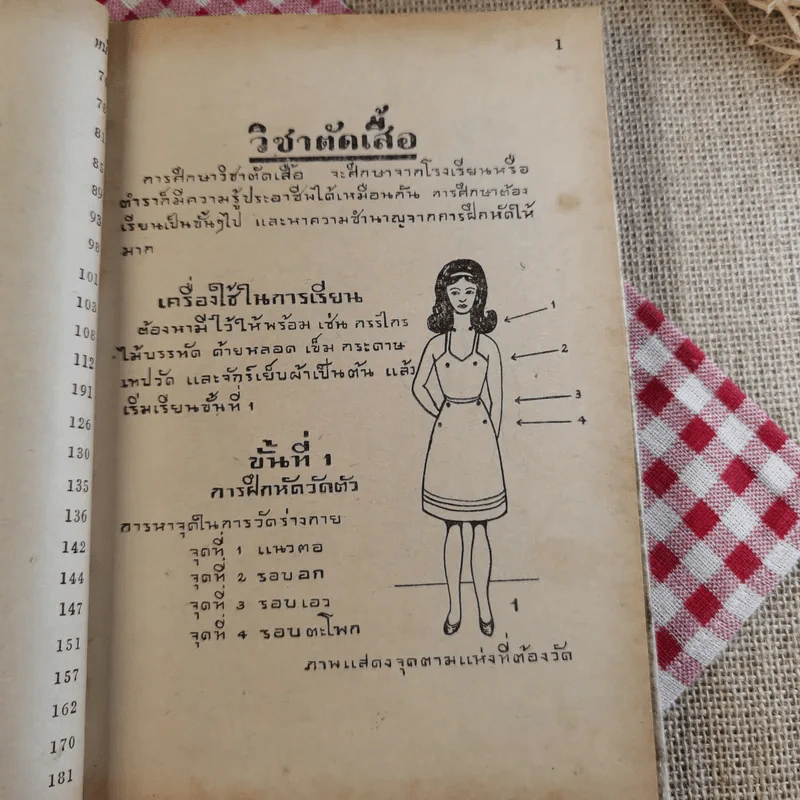 หน้
76
78
81
85
89
93
98
101
103
108
112
191
126
130
135
136
142
144
147
151
157
162
170
181
1
วิชาตัดเสื้อ
การศึกษาวิชาตัดเสื้อ จะศึกษาจากโรงเรียนหรือ
ตำราก็มีความรู้ประอาชีพได้เหมือนกัน การศึกษาต้อง
เรียนเป็นขั้นๆไป และหาความชำนาญจากการฝึกหัดให้
มาก
เครื่องใช้ในการเรียน
ต้องหามีไว้ให้พร้อม เช่น กรรไกร
ไม้บรรทัด ด้ายหลอด เข็ม กระดาษ
เทปวัด และจักร์เย็บผ้าเป็นต้น แล้ว
เริ่มเรียนขั้นที่ 1
1
2
3
4
ขั้นที่ 1
การฝึกหัดวัดตัว
การหาจุดในการวัดร่างกาย
จุดที่ 1 แนวตอ
จุดที่ 2 รอบอก
จุดที่ 3 รอบเอว
จุดที่ 4 รอบตะโพก
1
ภาพแสดงจุดตามแห่งที่ต้องวัด